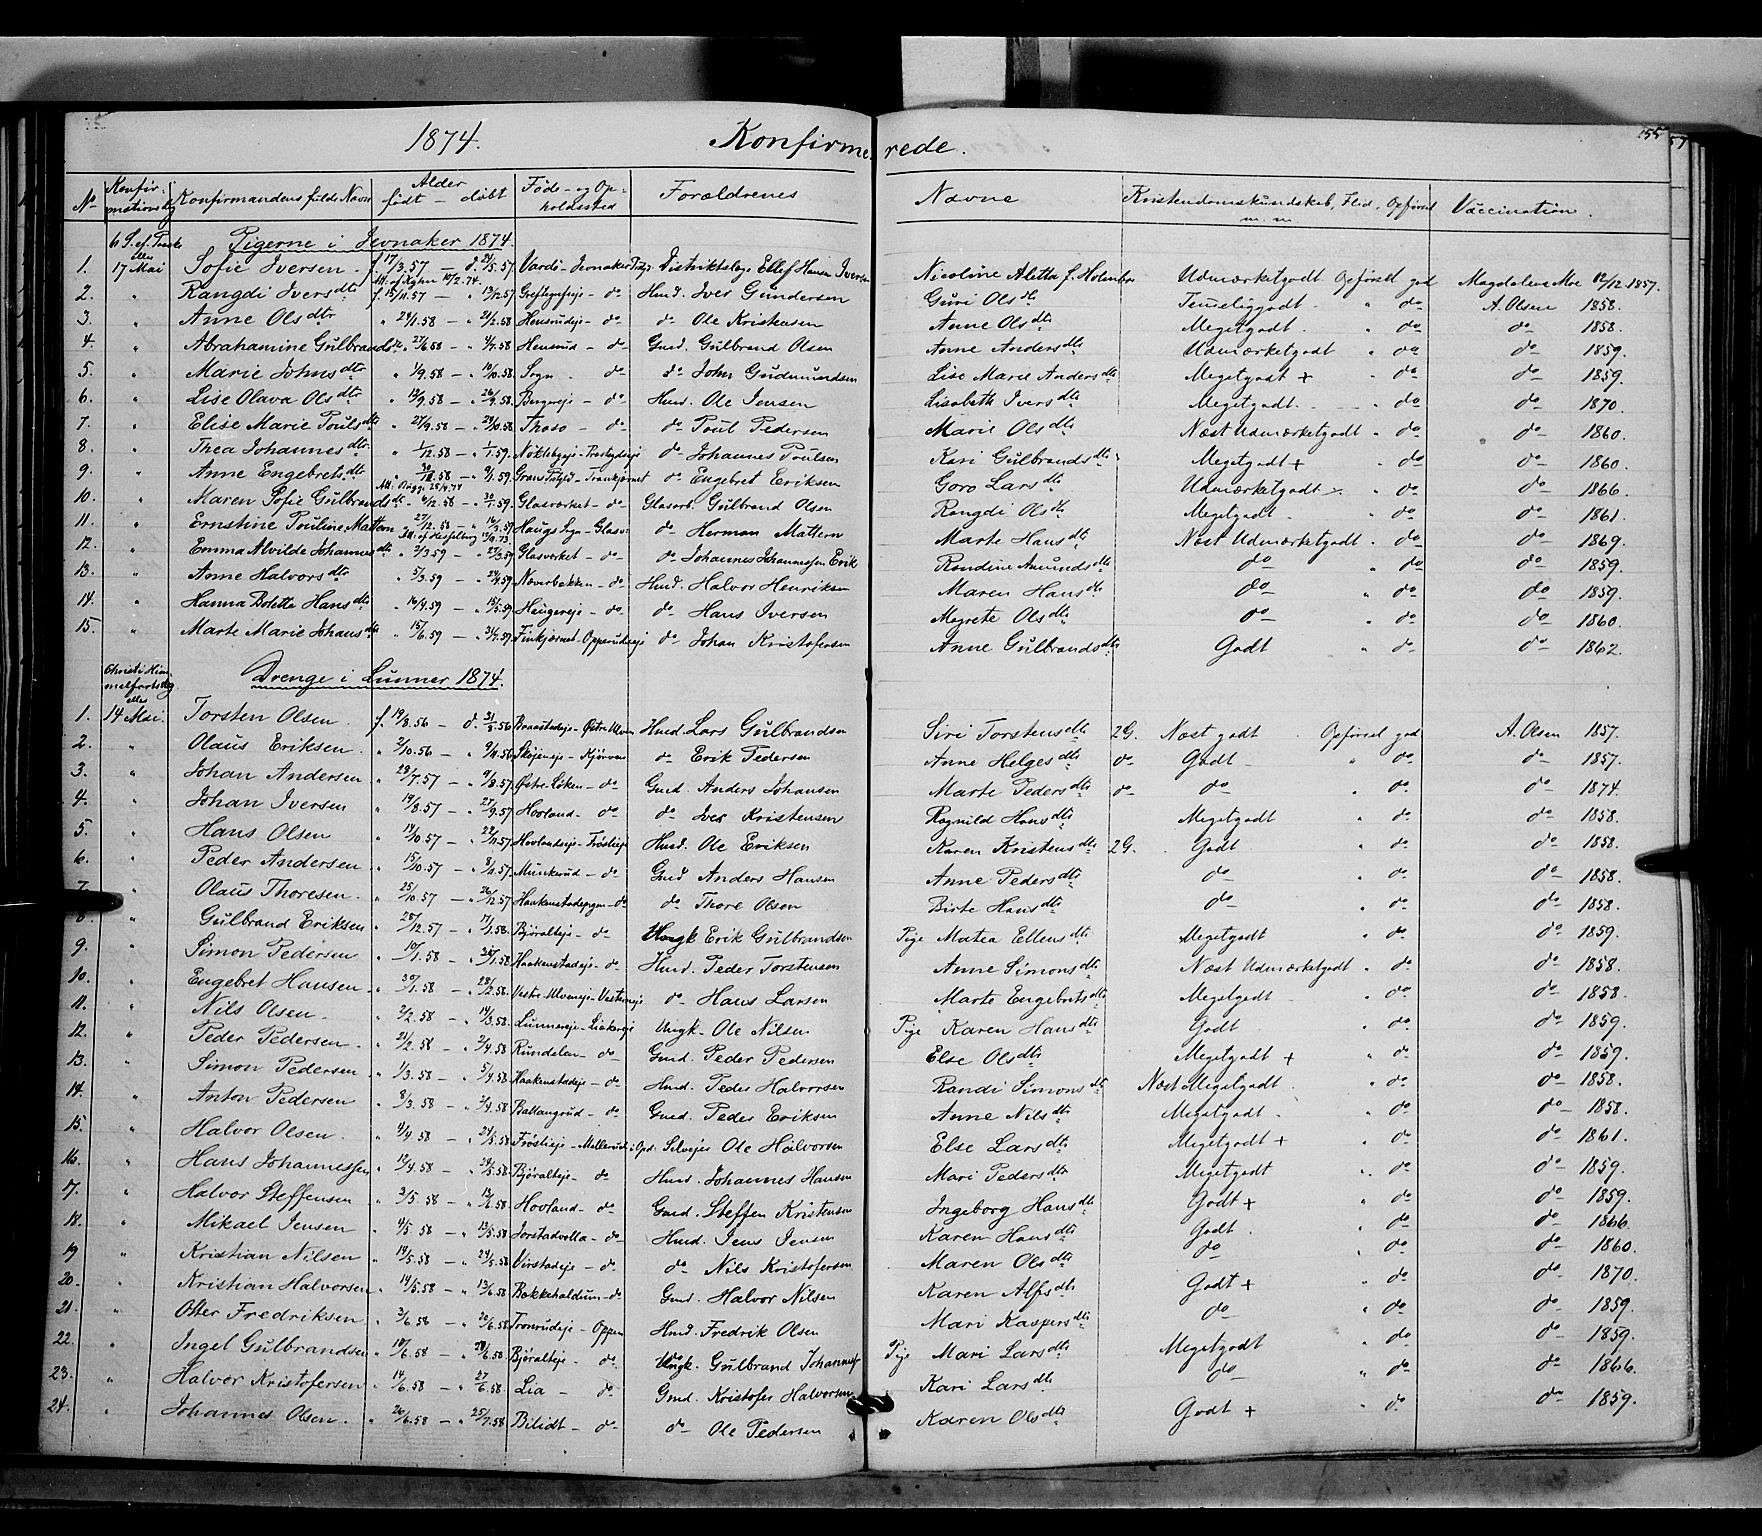 1874. Konfirmerede. 155
No Konfirmationsdag Konfirmandens fulde Navn Alder født — døbt Føde- og Opholdssted Forældrenes Navne Kristendomskundskab, Flid, Opførsel m. m. Vaccination.
6 S. ef. Paaske eller Pigerne i Jevnaker 1874.
1. 17 Mai Sofie Iversen f. 17/3.57 — d. 21/5.57 Vardö - Jevnaker Distriktslæge Ellef Hansen Iversen Nicoline Aletta f. Holmboe Udmærketgodt Opførsel god Magdalena Moe 12/12 1857.
2. " Rangdi Iversdtr f. 15/11.57 — " 13/12.57 do Husd. Iver Gundersen Guri Olsdtr Temmeliggodt " do A. Olsen 1858.
3. " Anne Olsdtr " 24/1.58 — " 21/2.58 Hensrudeje - do do Ole Kristensen Anne Olsdtr Megetgodt " do do 1858.
4. " Abrahamine Gulbrandsdtr " 27/6.58 — " 4/7.58 Hensrud - do Gmd. Gulbrand Olsen Anne Andersdtr Udmærketgodt " do do 1859.
5. " Marie Johnsdtr " 1/9.58 — " 10/10.58 Sogn - do do John Gudmundsen Lise Marie Andersdtr Megetgodt + " do do 1859.
6. " Lise Olava Olsdtr " 12/9.58 — " 26/9.58 Bergereje - do Husd. Ole Jensen Lisabeth Iversdtr Megetgodt - do do 1870.
7. " Elise Marie Poulsdtr " 27/9.58 — " 24/10.58 Thoso - do do Poul Pedersen Marie Olsdtr Næst Udmærketgodt " do do 1860.
8. " Thea Johannesdtr " 1/12.58 — " 1/1.59 do Johannes Poulsen Kari Gulbrandsdtr Megetgodt + " do do 1860.
9. " Anne Engebretsdtr 58 — " 9/1.59 do Engebret Eriksen Goro Larsdtr Udmærketgodt " do do 1866.
10. " Maren Sofie Gulbrandsdtr " 6/12.58 — " 30/1.59 Glasverket - do Glasarb. Gulbrand Olsen Rangdi Olsdtr Megetgodt " do do 1861.
11. " Ernstine Pouline Mattern 27/12.58 — " 16/3.59 Haugs Sogn - Glasv. do Herman Mattern Marte Hansdtr Næst Udmærketgodt " do do 1869.
12. " Emma Alvilde Johannesdtr " 2/3.59 — " 27/3.59 Glasverket - do do Johannes Johannessen Erik Rondine Amundsdtr do " do do 1859.
13. " Anne Halvorsdtr " 5/3.59 — " 24/4.59 Nøverbakken - do Husd. Halvor Henriksen Maren Hansdtr do " do do 1859.
14. " Hanna Boletta Hansdtr " 10/4.59 — " 15/5.59 Haugereje - do do Hans Iversen Magrete Olsdtr do " do do 1860.
15. " Marte Marie Johansdtr " 15/6.59 — " 31/7.59 Finkjærnet - Opperudseje do Johan Kristofersen Anne Gulbrandsdtr Godt " do do 1862.
Christi Himmelfartsdag eller Drenge i Lunner 1874.
1. 14 Mai. Torsten Olsen f. 19/8.56 — d. 31/8.56 Braastadeje - Østre Ulven Husd. Lars Gulbrandsen Siri Torstensdtr 2G. Næst godt Opførsel god A. Olsen 1857.
2. " Olaus Eriksen " 2/10.56 — " 9/11.56 Skøjeneje - Kjørven do Erik Pedersen Anne Helgesdtr do Godt " do do 1857.
3. " Johan Andersen " 28/7.57 — " 9/8.57 Østre Løken - do Gmd. Anders Johansen Marte Pedersdtr do do " do do 1874.
4. " Johan Iversen " 19/8.57 — " 27/9.57 Hovland - do do Iver Kristensen Ragnild Hansdtr Megetgodt " do do 1858.
5. " Hans Olsen " 14/10.57 — " 22/11.57 Hovlandseje - Frøslieje Husd. Ole Eriksen Karen Kristensdtr 2G. Godt " do do 1858.
6. " Peder Andersen " 15/10.57 — " 8/11.57 Munkerud - do Gmd Anders Hansen Anne Pedersdtr do " do do 1858.
7. " Olaus Thoresen " 25/10.57 — " 26/12.57 do do Thore Olsen Birte Hansdtr do " do do 1858.
8. " Gulbrand Eriksen " 28/12.57 — " 17/1.58 Bjøralteje - do Ungk Erik Gulbrandsen Pige Matea Ellensdtr Megetgodt " do do 1859.
9. " Simon Pedersen " 10/1.58 — 1.58 Haakenstadeje - do Husd. Peder Torstensen Anne Simonsdtr Næst Udmærketgodt " do do 1858.
10. " Engebret Hansen " 30/1.58 — " 28/2.58 Vestre Ulveneje - Vesterneje do Hans Larsen Marte Engebretsdtr Megetgodt " do do 1858.
11. " Nils Olsen " 2/2.58 — " 14/3.58 Lunnereje - Liekereje Ungk. Ole Nilsen Pige Karen Hansdtr Godt " do do 1859.
12. " Peder Pedersen " 21/2.58 — " 2/4.58 Rundelen - do Gmd. Peder Pedersen Else Olsdtr Megetgodt + " do do 1859.
13. " Simon Pedersen " 1/3.58 — " 5/4.58 Haakenstadeje - do Husd. Peder Halvorsen Randi Simonsdtr Næst Megetgodt " do do 1858.
14. " Anton Pedersen " 8/3.58 — " 2/4.58 Ballangrud - do Gmd. Peder Eriksen Anne Nilsdtr Megetgodt " do do 1858.
15. " Halvor Olsen " 4/4.58 — " 24/5.58 Frøslieje - Mellerud i Opd. Selvejer Ole Halvorsen Else Larsdtr Megetgodt + " do do 1861.
16. " Hans Johannessen " 12/4.58 — " 24/5.58 Bjøralteje - do Husd. Johannes Hansen Mari Pedersdtr Megetgodt " do do 1859.
17. " Halvor Steffensen " 3/5.58 — " 13/6.58 Hovland - do Gmd. Steffen Kristensen Ingeborg Hansdtr Godt + " do do 1859.
18. " Mikael Jensen " 4/5.58 — " 13/5.58 Jorstadvolla - do Husd. Jens Jensen Karen Hansdtr Godt " do do 1866.
19 " Kristian Nilsen " 14/5.58 — " 24/5.58 Virstadeje - do do Nils Kristofersen Maren Olsdtr do " do do 1860.
20. " Kristian Halvorsen " 14/5.58 — " 13/6.58 Bakkehaldum - do Gmd. Halvor Nilsen Karen Alfsdtr Godt + " do do 1870.
21. " Otter Fredriksen " 3/6.58 — " 20/6.58 Tronrudeje - Oppen Husd. Fredrik Olsen Mari Kaspersdtr do " do do 1859.
22. " Ingel Gulbrandsen " 10/6.58 — 6.58 Bjøralteje - do Ungk. Gulbrand Johannes Pige Mari Larsdtr Megetgodt " do do 1859.
23. " Halvor Kristofersen " 14/6.58 — " 27/6.58 Lia - do Gmd. Kristofer Halvorsen Kari Larsdtr do " do do 1866.
24. " Johannes Olsen " 26/6.58 — " 25/7.58 Bilidt - do do Ole Pedersen Karen Olsdtr Godt + " do do 1859.